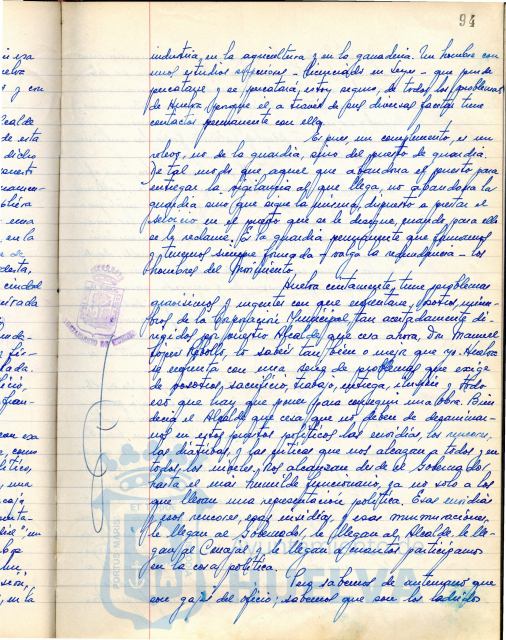 94
industria, en la agricultura y en la ganadería. Un hombre con
unos estudios superiores - licenciado en leyes - que puede
percatarse y se percatará, estoy seguro, de todos los problemas
de Huelva porque él, a través de sus diversas facetas tiene
contacto permanente con ella.
Es pues, un complemento, es un
relevo, no de la guardia, sino del puesto de guardia.
De tal modo que, aquel que abandona el puesto para
entregar la vigilancia al que llega, no abandona la
guardia sino que sigue la misma, dispuesto a prestar el
servicio en el puesto que se le designe, cuando para ello
se le reclame. Es la guardia permanente que formamos
y tenemos siempre formada - valga la redundancia - los
hombres del Movimiento.
Huelva ciertamente, tiene problemas
gravísimos y urgentes con que enfrentarse, vosotros, miem-
bros de la Corporación Municipal tan acertadamente di-
rigidos por vuestro Alcalde que cesa ahora, Don Manuel
López Rebollo, lo sabéis tan bien o mejor que yo. Huelva
se encuentra con una serie de problemas que exige
de vosotros, sacrificio, trabajo, entrega, ilusión y todo
eso que hay que poner para conseguir una obra. Bien
decía el Alcalde que cesa que no deben de desanimar-
nos en estos puestos políticos las envidias, los rencores,
las diatribas, y las críticas que nos alcanzan a todos y en
todos los niveles, nos alcanzan desde el Gobernador
hasta el más humilde funcionario, ya no solo a los
que llevan una representación política. Esas envidias
y esos rencores, esas insidias y esas murmuraciones
le llegan al Gobernador, le llegan al Alcalde le lle-
gan al Concejal y le llegan a cuantos participamos
en la cosa política.
sabemos de antemano que
son gajes del oficio; sabemos que son los ladridos